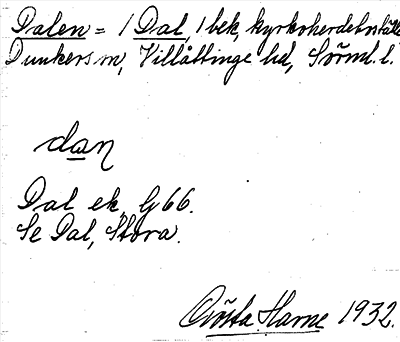 Dalen = 1 Dal, 1 bek, kyrkoherdeboställe
Dunkers sn, Villåttinge hd, Sörml. l.
dan
Dal ek. G 66.
Se Dal, Stora.
Gösta Harne 1932.